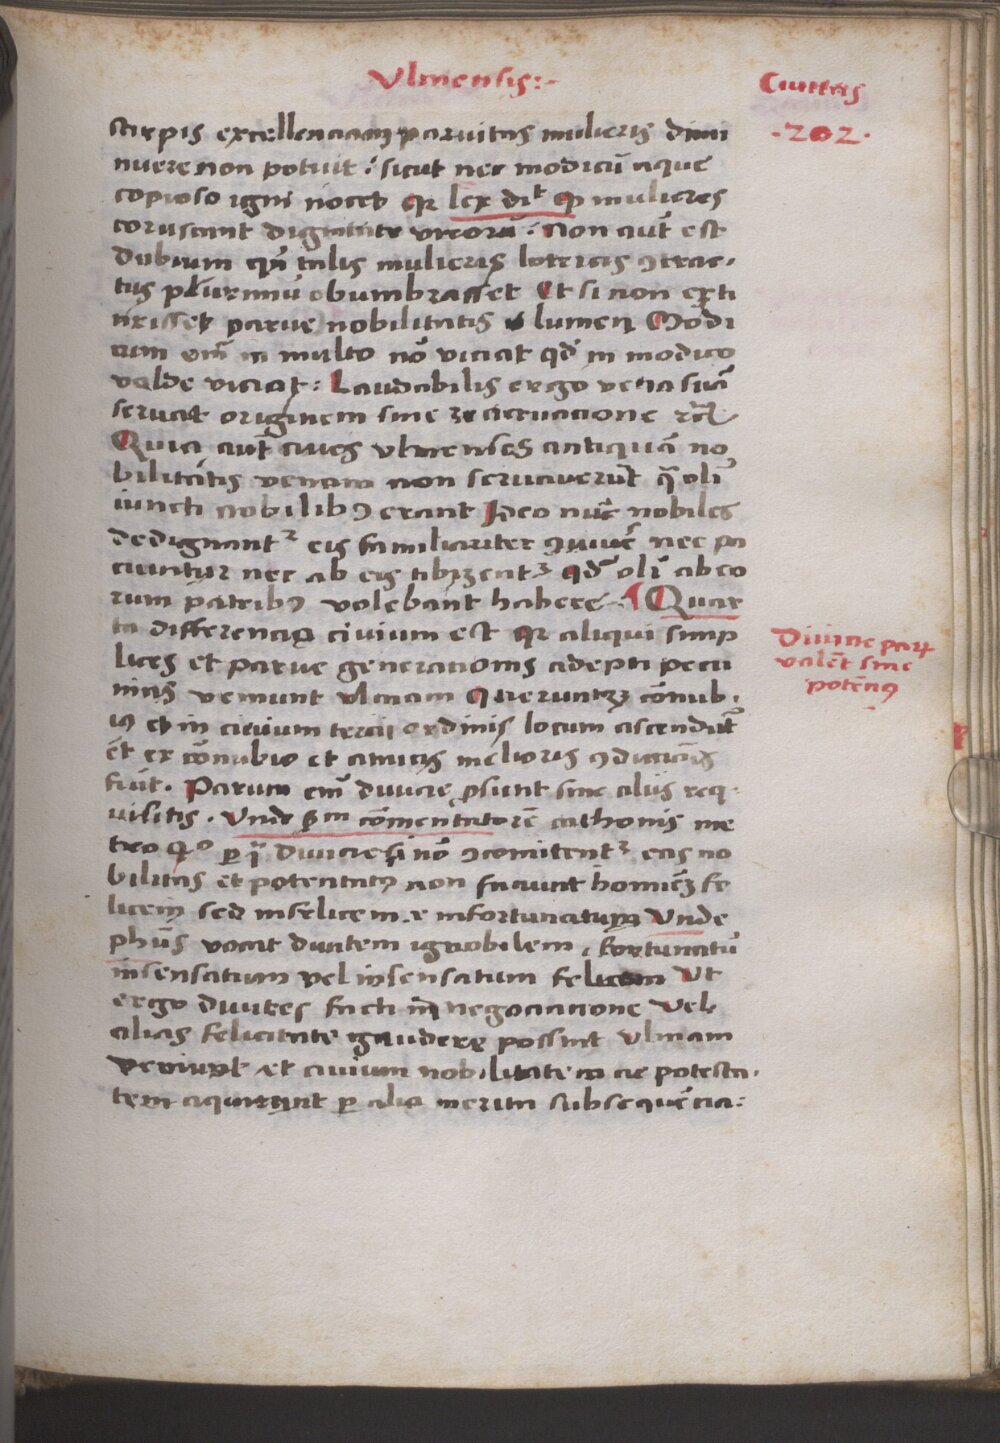 Vlmensis:-
Ciuitas
·202·
stirpis excellenciam paruitas mulieris dimi
nuere non potuit : sicut nec modicū aque
copioso igni nocet qr lex dit q mulieres
coruscant dignitate virorū. Non aut̄ est
dubium qn̄ talis mulieris lotricis ꝯtrac-
tus plurimū obumbrasset Et si non exti
nxisset parue nobilitatis lumen Modi
cum em̄ in multo nō viciat qd̄ in modico
valde viciat: Laudabilis ergo vena suā
seruat originem sine
Quia aut̄ ciues vlmenses antiquā no
bilitatis venam non seruauerūt q̄ oli
iuncti nobilibꝯ erant Ideo nūc nobiles
dedignant᷑ eis familiariter ꝯuiuē nec pa
ciuntur nec ab eis qd̄ oli ab eo
rum patribꝯ volebant habere. ¶ Quar
ta differencia ciuium est qr aliqui simp
lices et parue generacionis adepti pecu
nias veniunt vlmam querunt cōnub-
iꝯ et in ciuium tercii ordinis locum ascendūt
et ex cōnubio et amicis melioris ꝯdicionis
fiūt. Parum em̄ diuicie ꝓsunt sine aliis req-
uisitis. Vnde sm cōmentatorē cathonis me
tro qo diuicie si nō ꝯcomitent᷑ eas no
bilitas et potentatꝯ non faciunt hominē fe
licem sed infelicem infortunatum Vnde
phūs vocat diuitem ignobilem, fortunatū
insensatum vel insensatum felicem Vt
ergo diuites facti in negociacione Vel
alias felicitate gaudere possint Vlmam
veniunt et ciuium nobilitatem ac potesta-
tem aquirunt per alia merita subsequēcia:
Diuicie par
valēt sine
potēciꝯ